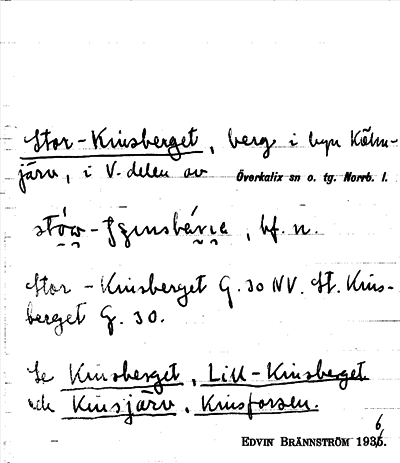 Stor-Kinsberget, berg i byn Kölm-
järv, i V-delen av Överkalix sn o. tg. Norrb. l.
, bf. n.
Stor-Kinsberget G. 30 NV. St. Kins-
berget G. 30.
Se Kinsberget, Lill-Kinsberget
och Kinsjärv, Kinsforsen.
EDVIN BRÄNNSTRÖM 1936.